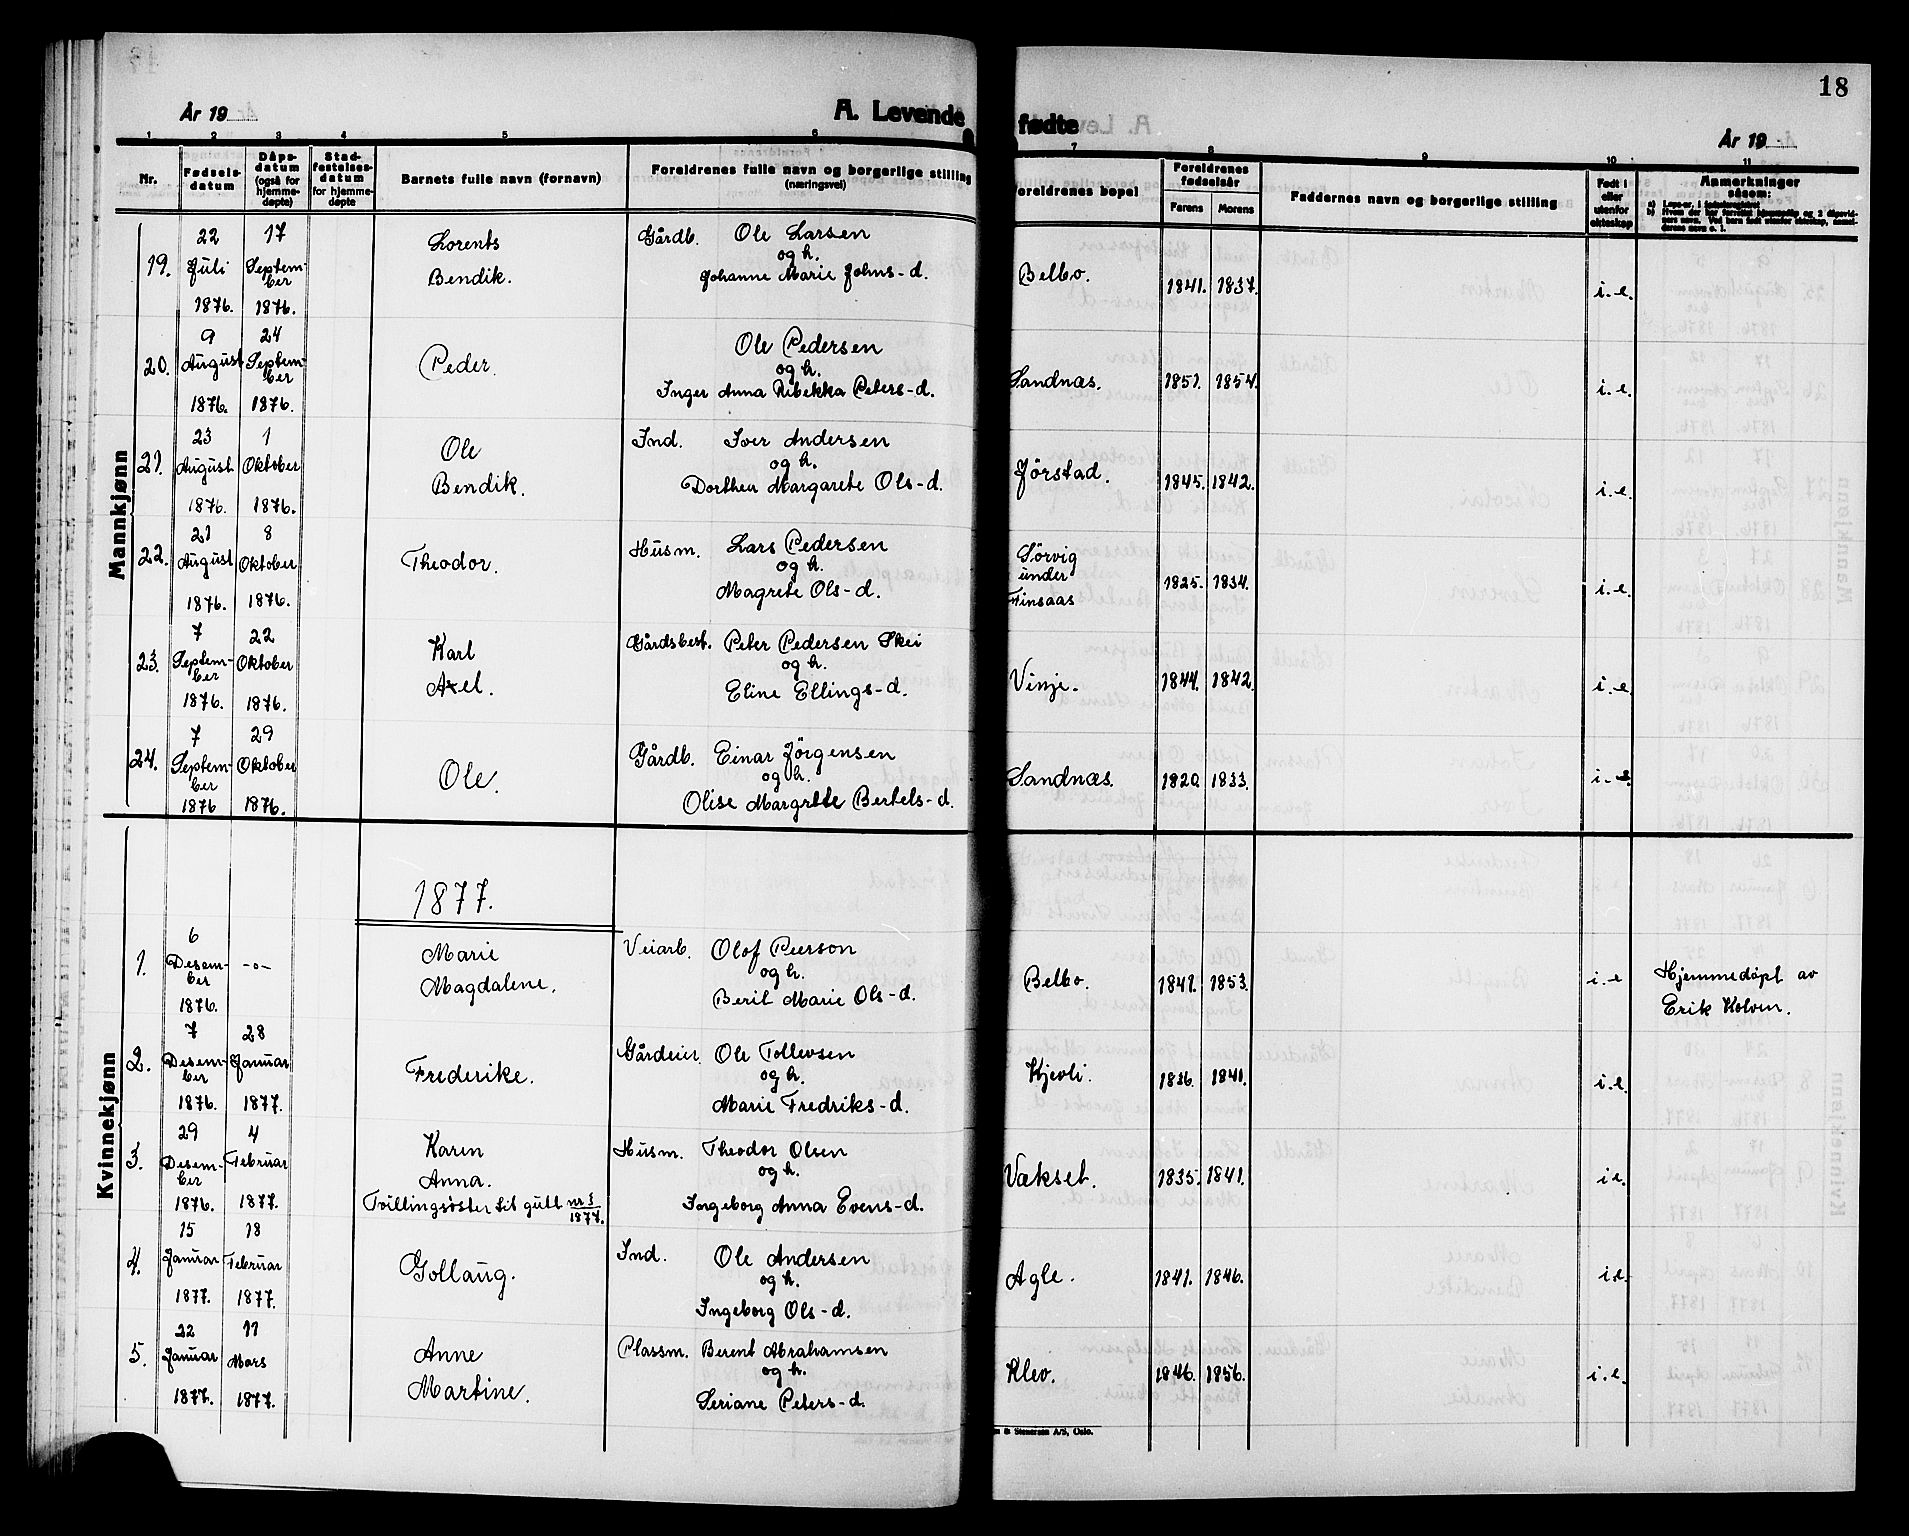 18
År 19
A. Levende fødte
År 19
1 2 3 4 5 6 7 8 9 10 11
Nr.
Fødsels-
datum
Dåps-
datum
(også for
hjemme-
døpte)
Stad-
festelses-
datum
for hjemme-
døpte
Barnets fulle navn (fornavn)
Foreldrenes fulle navn og borgerlige stilling
(næringsvei)
Foreldrenes bopel
Foreldrenes
fødselsår
Farens Morens
Faddernes navn og borgerlige stilling
Født i
eller
utenfor
ekteskap
Anmerkninger
såsom:
Mannkjønn
19. 22 Juli 1876. 17 Septem-ber 1876. Lorents Bendik. Gårdb. Ole Larsen og h. Johanne Marie Johns-d. Belbo. 1841. 1837. i.e.
20. 9 August 1876. 24 Septem-ber 1876. Peder. Ole Pedersen og h. Inger Anna Ribekka Peters-d. Sandnæs. 1851. 1854. i.e.
21. 23 August 1876. 1 Oktober 1876. Ole Bendik. Ind. Iver Andersen og h. Dorthea Margarete Ols-d. Jörstad. 1845. 1842. i.e.
22. 21 August 1876. 8 Oktober 1876. Theodor. Husm. Lars Pedersen og h. Magrete Ols-d. Sörvig under Finsaas 1825. 1834. i.e.
23. 7 Septem-ber 1876. 22 Oktober 1876. Karl Axel. Gårdsbest. Peter Pedersen Skei og h. Eline Ellings-d. Vinje. 1844. 1842. i.e.
24. 7 Septem-ber 1876 29 Oktober 1876. Ole. Gårdb. Einar Jörgensen og h. Olise Margrete Bertels-d. Sandnæs. 1820. 1833. i.e.
Kvinnekjønn
1877.
1. 6 Desem-ber 1876. -o- Marie Magdalene. Veiarb. Olof Peerson og h. Berit Marie Ols-d. Belbo. 1849. 1853. i.e Hjemmedöpt av Erik Kolven.
2. 7 Desem-ber 1876. 28 Januar 1877. Frederike. Gårdeier Ole Tollevsen og h. Marie Fredriks-d. Kjevli. 1836. 1841. i.e.
3. 29 Desem-ber 1876. 4 Februar 1877. Karen Anna. Tvillingsöster til gutt nr 3/1877. Husm. Theodor Olsen og h. Ingeborg Anna Evens-d. Vækset. 1835. 1841. i.e.
4. 15 Januar 1877. 18 Februar 1877. Gollaug. Ind. Ole Andersen og h. Ingeborg Ols-d. Agle. 1841. 1846. i.e.
5. 22 Januar 1877. 11 Mars 1877. Anne Martine. Plassm. Berent Abrahamsen og h. Seriane Peters-d. Klev. 1846. 1856. i.e.
& Stenersen A/S, Oslo.